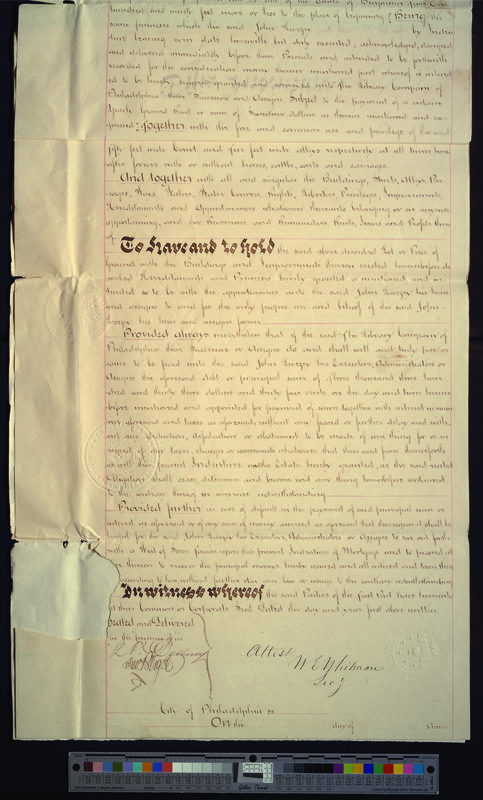 hundred and ninety feet more or less to the place of beginning. Being the
same premises which the said John Turzzer by Inden
ture bearing even date herewith but duly executed, acknowledged, stamped
and delivered immediately before these Presents and intended to be forthwith
recorded for the consideration money therein mentioned part whereof is intend
ed to be hereby secured granted and conveyed unto the Library Company of
Philadelphia their Successors and Assigns Subject to the payment of a certain
Yearly Ground Rent or sum of Seventeen dollars as therein mentioned and re
served. Together with the free and common use and privilege of the said
fifty feet wide Court and five feet wide alleys respectively at all times here
after forever with or without horses, cattle, carts and carriages.
And together with all and singular the Buildings, Streets, Alleys, Pas
sages, Ways, Waters, Water Courses, Rights, Liberties, Privileges, Improvements,
Hereditaments and Appurtenances whatsoever thereunto belonging or in anywise
appertaining, and the Reversions and Remainders, Rents, Issues and Profits there
of
To Have and to hold the said above described Lot or Piece of
Ground with the Buildings and Improvements thereon erected hereinbefore de
scribed Hereditaments and Premises hereby granted or mentioned and in
tended so to be with the appurtenances unto the said John his heirs
and assigns to and for the only proper use and behoof of the said John
his heirs and assigns forever.
Provided always, nevertheless that if the said The Library Company of
Philadelphia their Successors or Assigns do and shall well and truly pay or
cause to be paid unto the said John his Executors, Administrators or
Assigns the aforesaid debt or principal sum of Three thousand three hun
dred and thirty three dollars and thirty four cents on the day and time herein
before mentioned and appointed for payment of same together with interest
and taxes as aforesaid, without any fraud or further delay and with
out any deduction, defalcation or abatement to be made of any thing for or in
respect of any taxes, charges or assessments whatsoever that then and from thenceforth
as well this present Indenture as the Estate hereby granted, as the said recited
Obligation shall cease, determine and become void any thing hereinbefore contained
to the contrary thereof in anywise notwithstanding
Provided further in case of default in the payment of said principal sum or
interest as aforesaid or of any sum of money assessed as aforesaid that thereupon it shall be
lawful for the said John his Executors, Administrators or Assigns to sue out forth
with a Writ of Scire Facias upon this present Indenture of Mortgage and to proceed at
law thereon to recover the principal money hereby secured and all interest and taxes thereon
according to law, without further stay, any law or usage to the contrary notwithstanding
In witness whereof the said Parties of the first Part have hereunto
set their Common or Corporate Seal. Dated the day and year first above written
Sealed and Delivered
in the presence of us
Attest
Secy
City of Philadelphia ss.
On the day of Anno